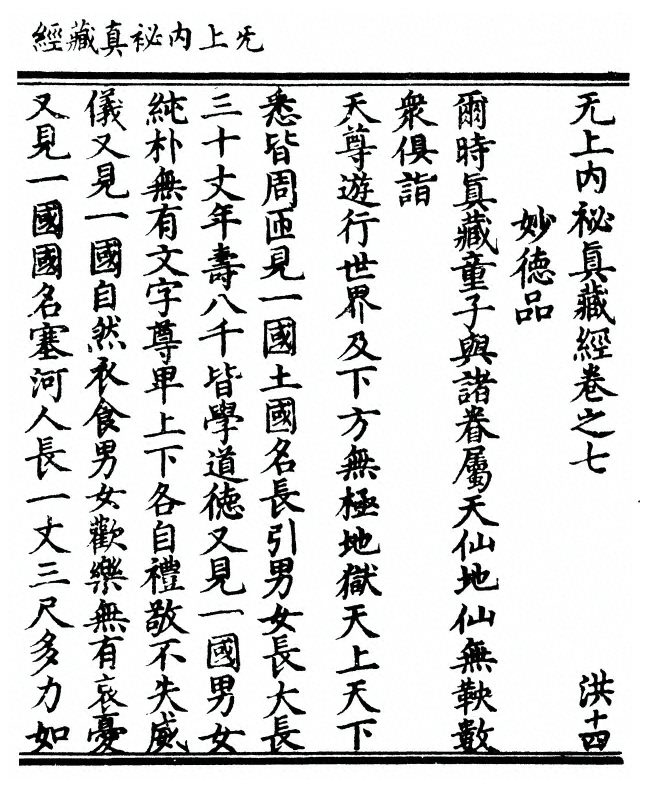 无上内祕真藏經
无上内祕真藏經卷之七 洪十四
妙德品
爾時真藏童子與諸眷屬天仙地仙無鞅數
衆俱詣
天尊遊行世界及下方無極地獄天上天下
悉皆周匝見一國土國名長引男女長大長
三十丈年壽八千皆學道德又見一國男女
純朴無有文字尊卑上下各自禮敬不失威
儀又見一國自然衣食男女歡樂無有哀憂
又見一國國名塞河人長一丈三尺多力如